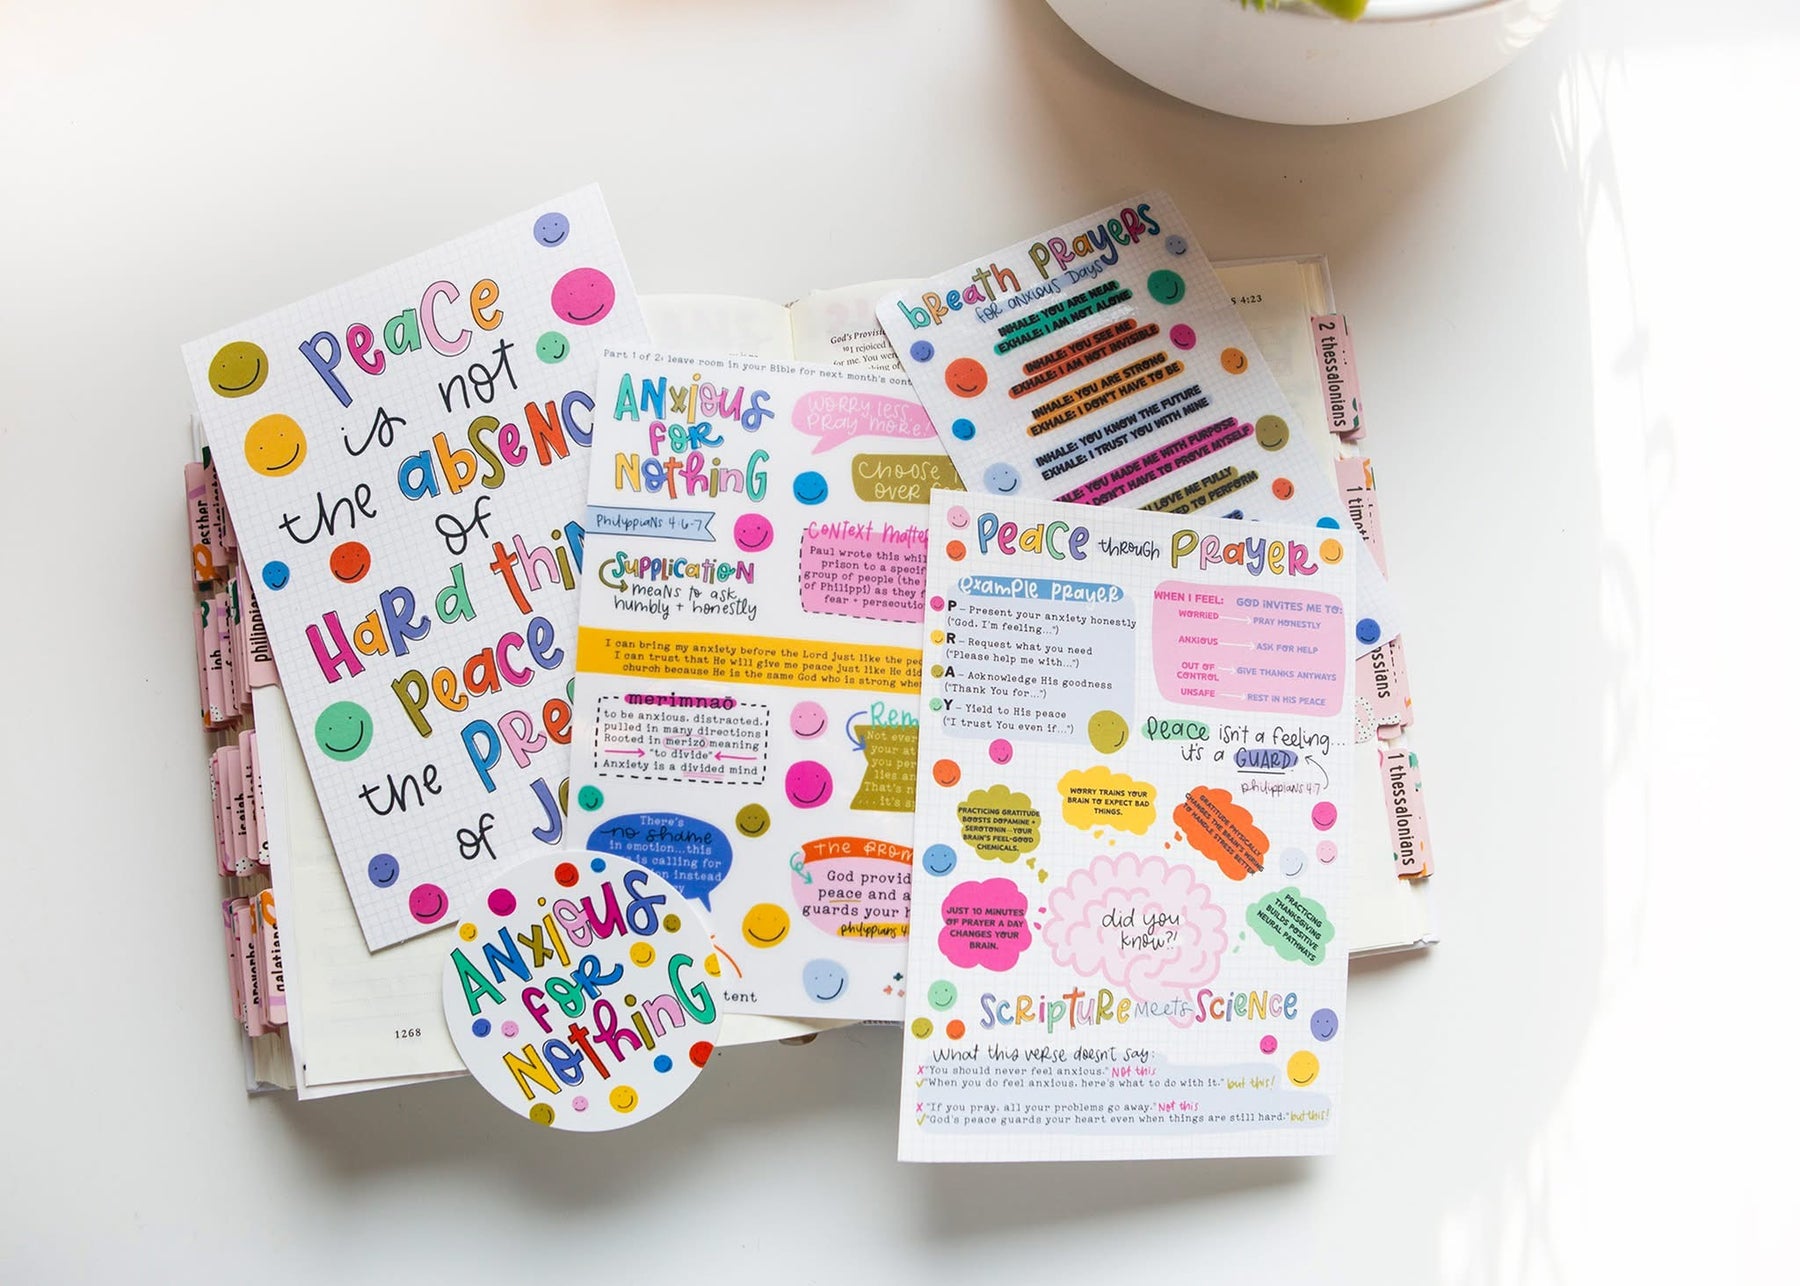 Peace
is not
the absence
of
Hard thin
peace
the pres
of J
Part 1 of 2: leave room in your Bible for next month's cont
Anxious
for
Nothing
Philippians 4:6-7
Supplication
means to ask
humbly + honestly
Worry less,
Pray more!
Choose
over
Context matte
Paul wrote this whi
prison to a specif
group of people (the
of Philippi) as they f
fear + persecutio
I can bring my anxiety before the Lord just like the pe
I can trust that He will give me peace just like He did
church because He is the same God who is strong whe
merimnaō
to be anxious, distracted,
pulled in many directions
Rooted in merizō meaning
"to divide"
Anxiety is a divided mind
Rem
Not ever
your at
you per
lies an
That's n
... it's s
There's
no shame
in emotion...this
is calling for
on instead
the prom
God provid
peace and a
guards your h
philippians 4
tent
Anxious
for
Nothing
breath prayers
for anxious days
INHALE: YOU ARE NEAR
EXHALE: I AM NOT ALONE
INHALE: YOU SEE ME
EXHALE: I AM NOT INVISIBLE
INHALE: YOU ARE STRONG
EXHALE: I DON'T HAVE TO BE
INHALE: YOU KNOW THE FUTURE
EXHALE: I TRUST YOU WITH MINE
ALE: YOU MADE ME WITH PURPOSE
DON'T HAVE TO PROVE MYSELF
LOVE ME FULLY
ED TO PERFORM
Peace through Prayer
example prayer
P – Present your anxiety honestly
("God, I'm feeling...")
R – Request what you need
("Please help me with...")
A – Acknowledge His goodness
("Thank You for...")
Y – Yield to His peace
("I trust You even if...")
WHEN I FEEL: GOD INVITES ME TO:
WORRIED PRAY HONESTLY
ANXIOUS ASK FOR HELP
OUT OF
CONTROL GIVE THANKS ANYWAYS
UNSAFE REST IN HIS PEACE
Peace isn't a feeling...
it's a GUARD!
philippians 4:7
PRACTICING GRATITUDE
BOOSTS DOPAMINE +
SEROTONIN—YOUR
BRAIN'S FEEL-GOOD
CHEMICALS.
WORRY TRAINS YOUR
BRAIN TO EXPECT BAD
THINGS.
GRATITUDE PHYSICALLY
CHANGES THE BRAIN'S WIRING
TO HANDLE STRESS BETTER
JUST 10 MINUTES
OF PRAYER A DAY
CHANGES YOUR
BRAIN.
did you
know?!
PRACTICING
THANKSGIVING
BUILDS POSITIVE
NEURAL PATHWAYS
Scripture meets Science
What this verse doesn't say:
"You should never feel anxious." Not this
"When you do feel anxious, here's what to do with it." but this!
"If you pray, all your problems go away." Not this
"God's peace guards your heart even when things are still hard." but this!
God's Provis
10 I rejoiced
for me. You wer
S 4:23
1268
esther
job
philippian
isaiah
proverbs
galatians
2 thessalonians
1 timot
ssians
1 thessalonians